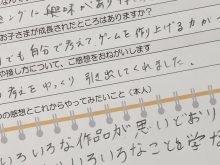 ミングに興味があり
お子さまが成長されたところはありますか？
でも自分で考えてゲームを作り上げる力が
接し方について、ご感想をおねがいします
考えをゆっくり引き出してくれました。
の感想とこれからやってみたいこと（本人）
いろいろな作品が思いどおり
いろいろなことを学